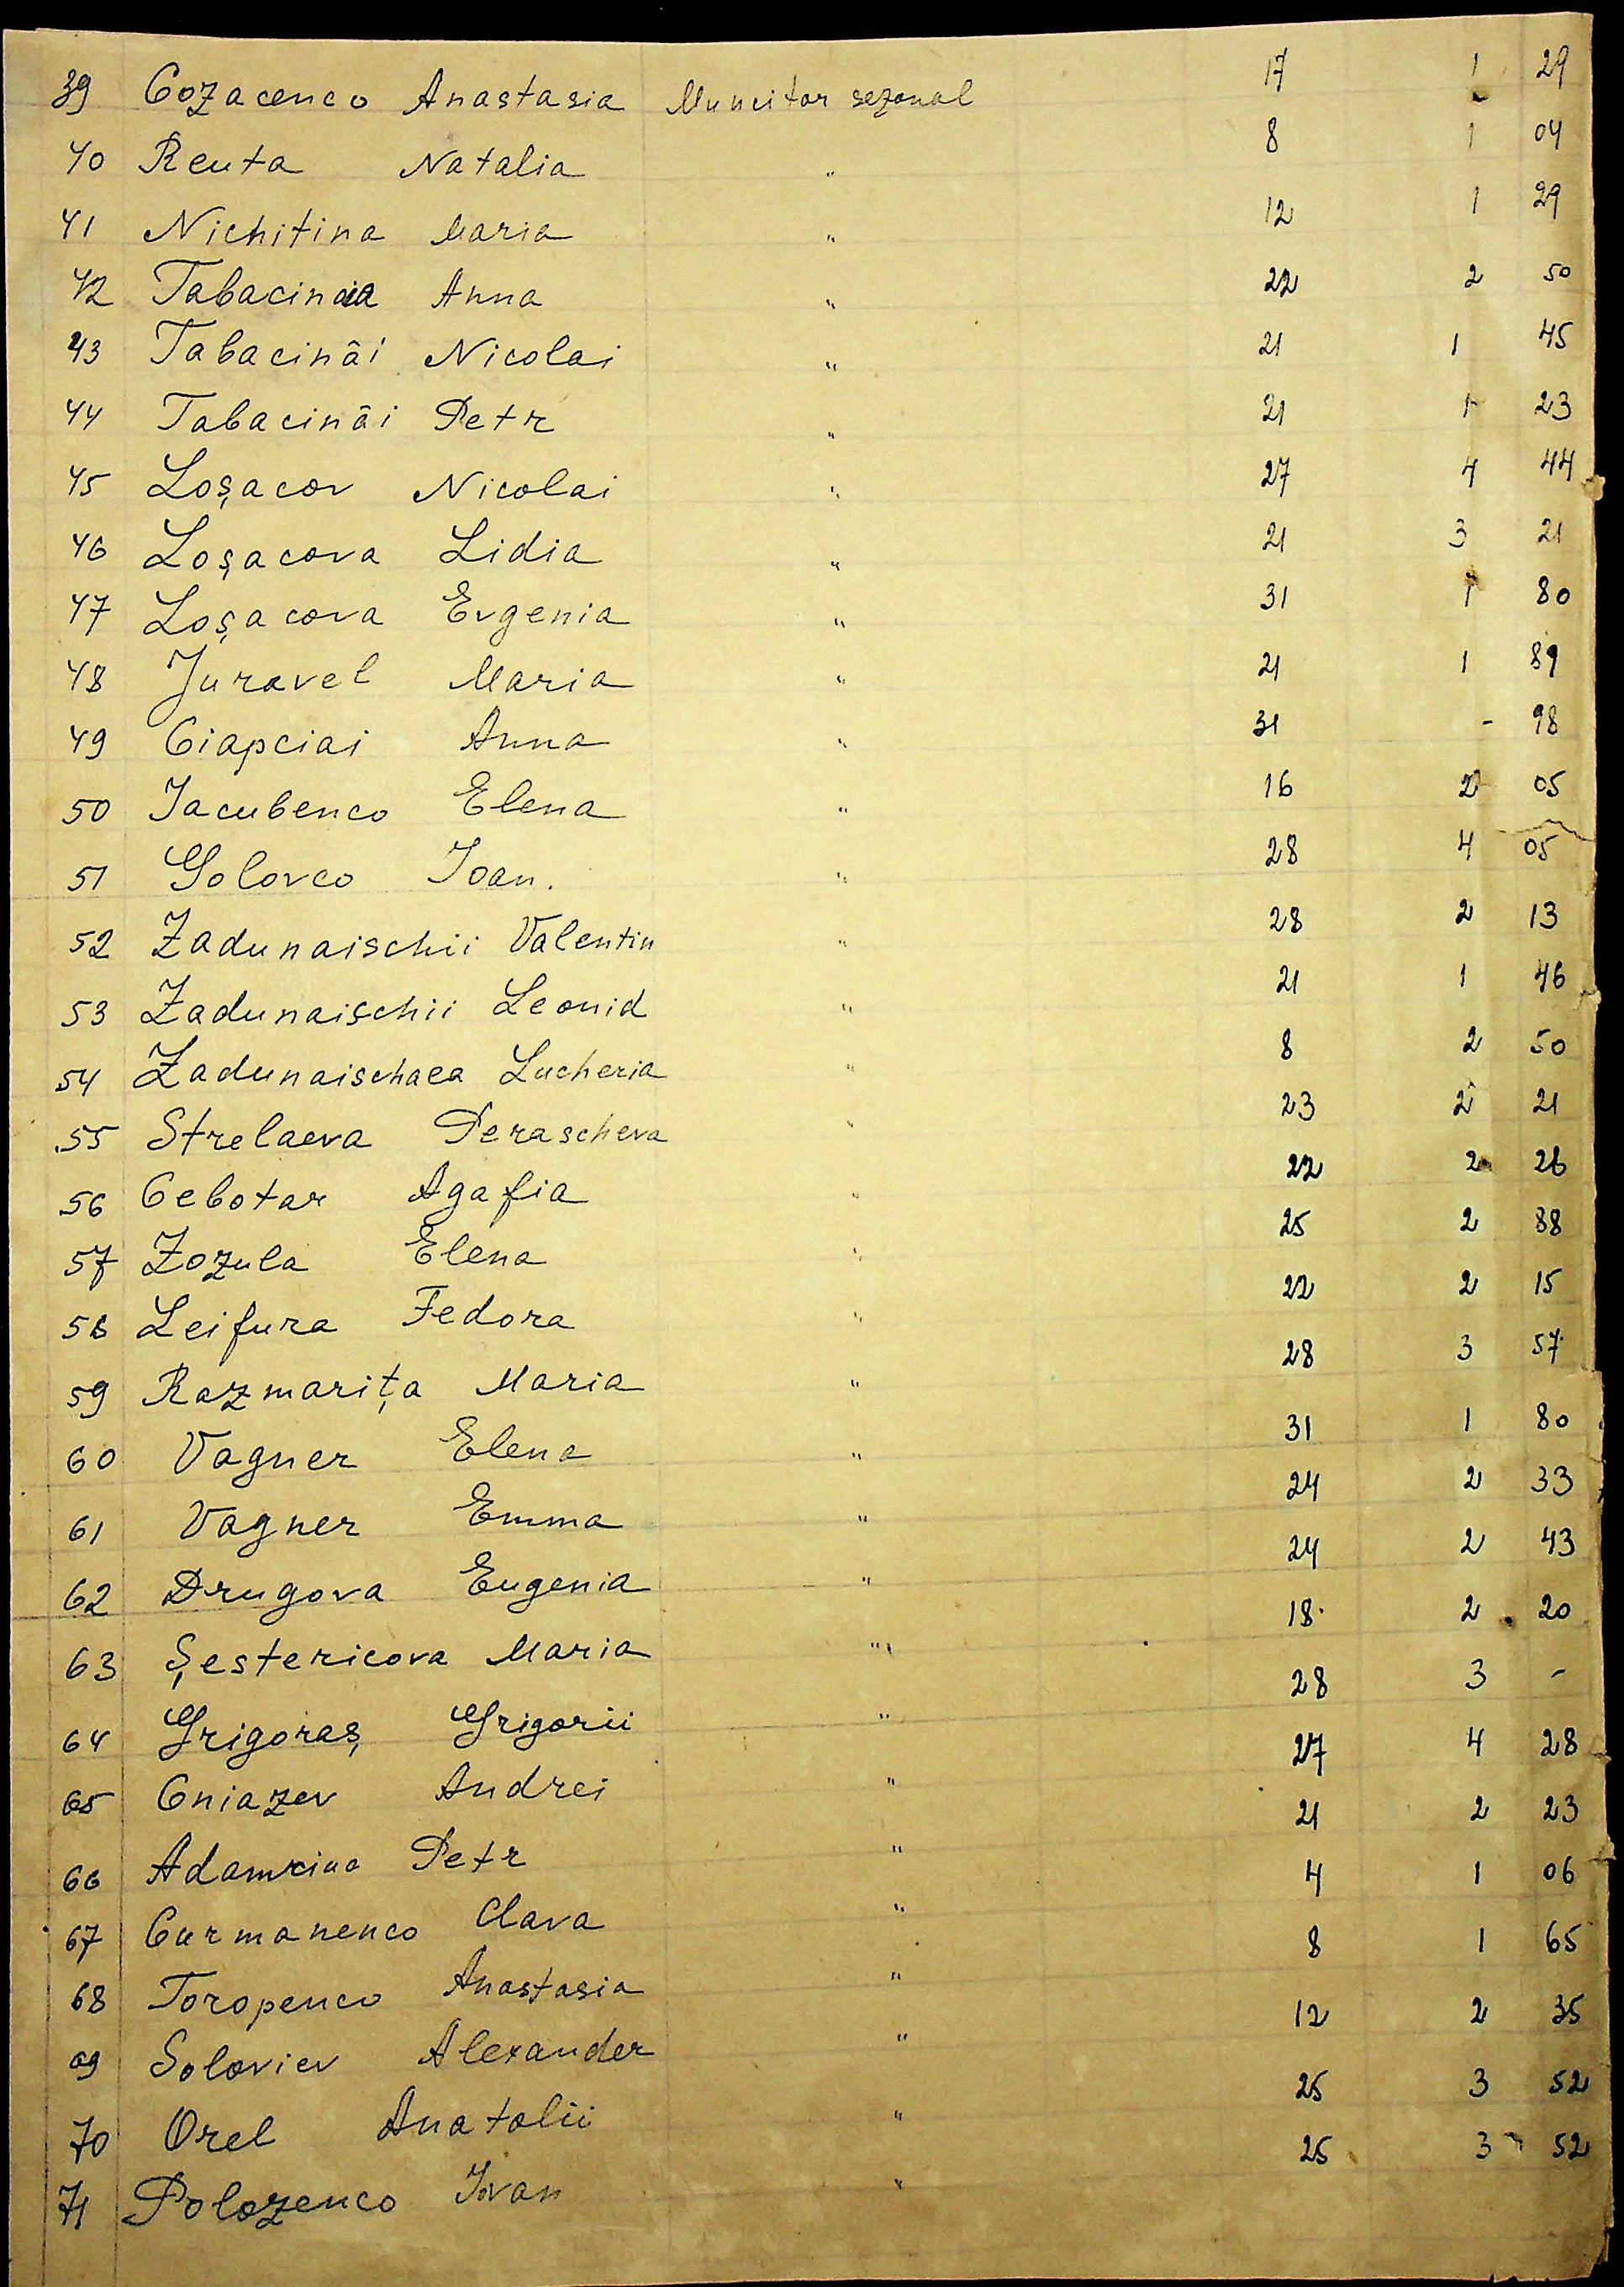 39 Cozacenco Anastasia Muncitor sezonal 17 1 29
40 Reuta Natalia " 8 1 04
41 Nichitina Maria " 12 1 29
42 Tabacinaia Anna " 22 2 50
43 Tabacinâi Nicolai " 21 1 45
44 Tabacinâi Petr " 21 1 23
45 Loşacov Nicolai " 27 4 44
46 Loşacova Lidia " 21 3 21
47 Loşacova Evgenia " 31 1 80
48 Juravel Maria " 21 1 89
49 Ciapciai Anna " 31 - 98
50 Iacubenco Elena " 16 2 05
51 Golovco Ioan. " 28 4 05
52 Zadunaischii Valentin " 28 2 13
53 Zadunaischii Leonid " 21 1 46
54 Zadunaischaea Lucheria " 8 2 50
55 Strelaeva Perascheva " 23 2 21
56 Cebotar Agafia " 22 2 26
57 Zozula Elena " 25 2 38
58 Leifura Fedora " 22 2 15
59 Razmariţa Maria " 28 3 57
60 Vagner Elena " 31 1 80
61 Vagner Emma " 24 2 33
62 Drugova Eugenia " 24 2 43
63 Şestericova Maria " 18 2 20
64 Grigoraş Grigorii " 28 3 -
65 Cniazev Andrei " 27 4 28
66 Petr " 21 2 23
67 Curmanenco Clava " 4 1 06
68 Toropenco Anastasia " 8 1 65
69 Soloviev Alexander " 12 2 35
70 Orel Anatolii " 25 3 52
71 Polozenco Ivan " 25 3 52